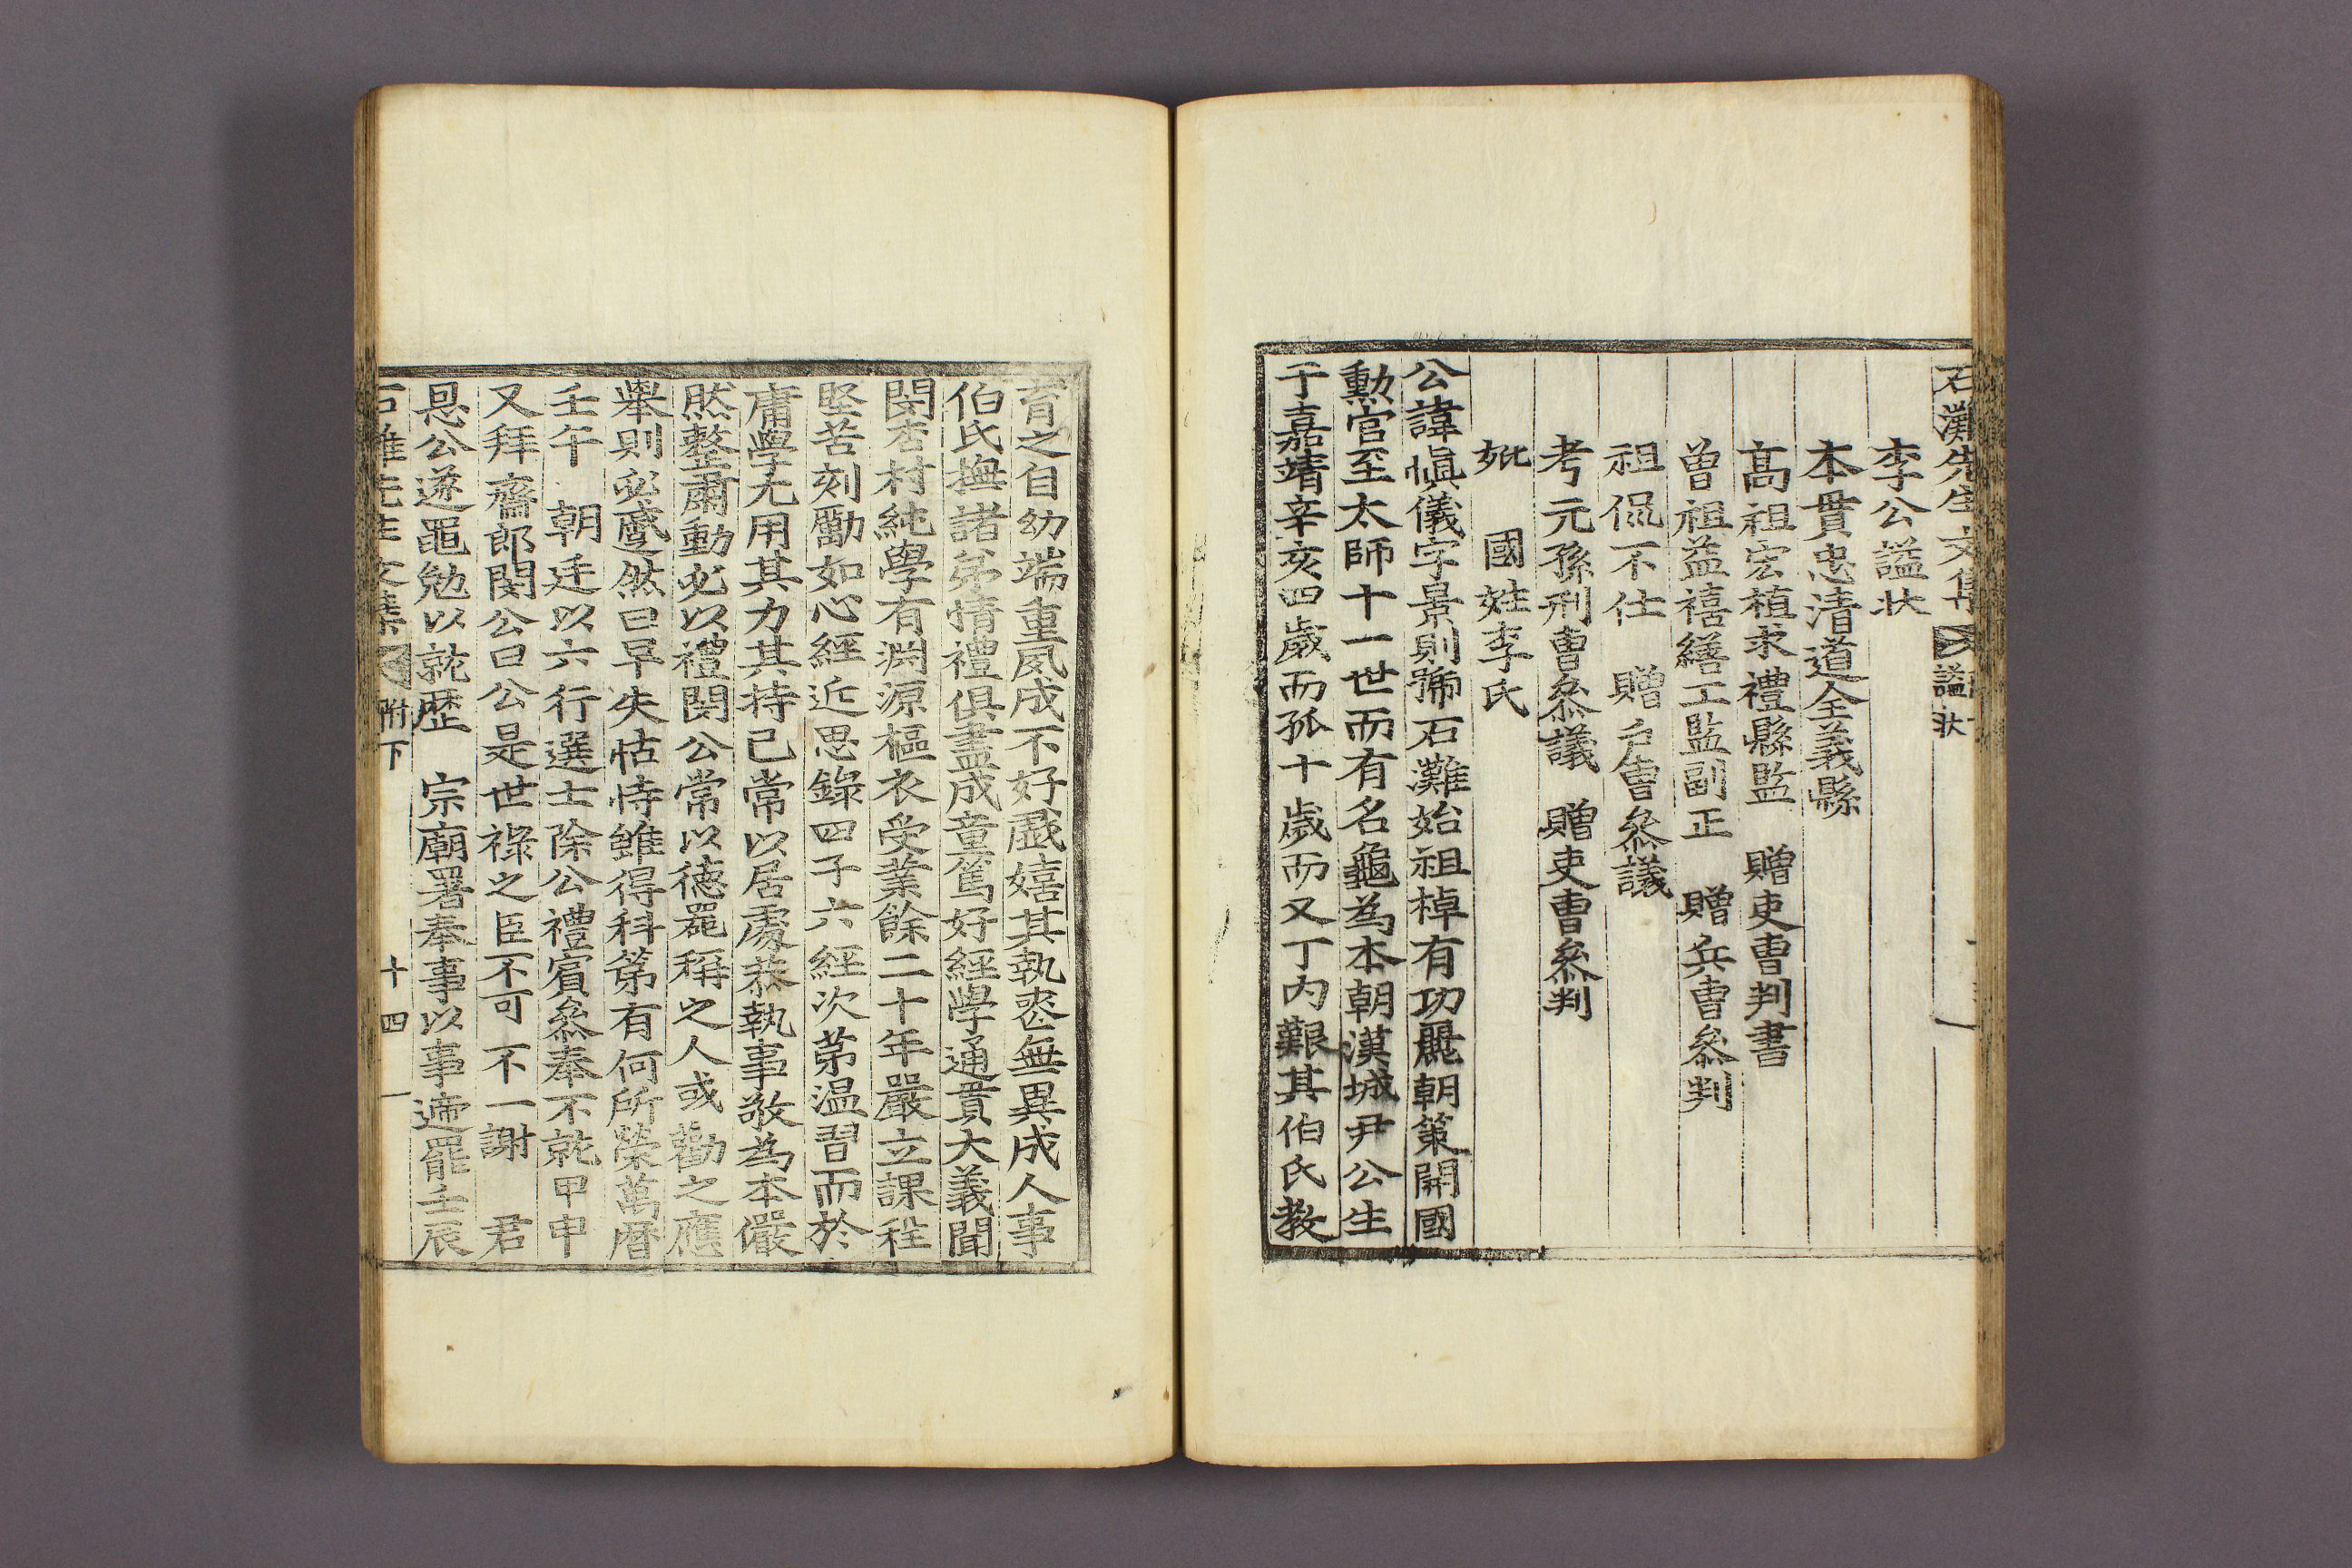 石灘先生文集 謚狀 一
李公謚狀
本貫忠清道全義縣
高祖宏植求禮縣監 贈吏曹判書
曾祖益禧繕工監副正 贈兵曹叅判
祖侃不仕 贈戶曹叅議
考元孫刑曹叅議 贈吏曹叅判
妣 國姓李氏
公諱愼儀字景則號石灘始祖棹有功麗朝策開國
勳官至太師十一世而有名龜為本朝漢城尹公生
于嘉靖辛亥四歲而孤十歲而又丁內艱其伯氏教
育之自幼端重夙成不好戱嬉其執喪無異成人事
伯氏撫諸弟情禮俱盡成童篤好經學通貫大義聞
閔杏村純學有淵源樞衣受業餘二十年嚴立課程
堅苦刻勵如心經近思錄四子六經次第溫習而於
庸學尤用其力其持己常以居處恭執事敬為本儼
然整肅動必以禮閔公常以德器稱之人或勸之應
擧則必蹙然曰早失怙恃雖得科第有何所榮萬曆
壬午 朝廷以六行選士除公禮賓叅奉不就甲申
又拜齋郎閔公曰公是世祿之臣不可不一謝 君
恩公遂黽勉以就歷 宗廟署奉事以事遞罷壬辰
石灘先生文集 附下 十四 一